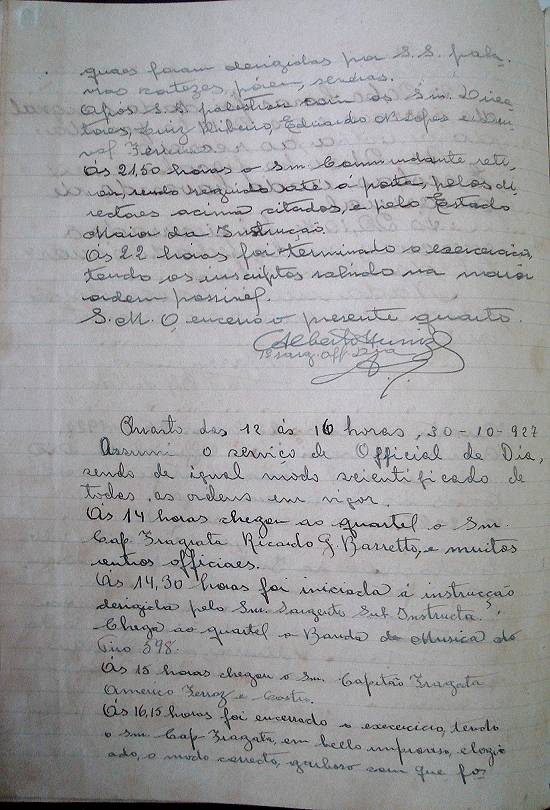 quaes foram derigidas por S.S. pala-
vras cortezes, porem, serias.
Após S.S. palestrou com os Snr. Dire-
tores, Luiz Ribeiro, Eduardo N. Lopes e
Ferreira.
Ás 21,50 horas o Snr. Commandante reti-
rou, sendo seguido até á porta, pelos di-
rectores acima citados, e pelo Estado
Maior da Instrucção.
Ás 22 horas foi terminado o exercicio,
tendo os inscriptos sahido na maior
ordem possivel.
S.M.O. encerro o presente quarto.
Alberto Muniz
1º sarg. Off. Dia
Quarto das 12 ás 16 horas, 30-10-927
Assumi o serviço de Official de Dia,
sendo de igual modo scientificado de
todas as ordens em vigor.
Ás 14 horas chegou ao quartel o Snr.
Cap. Fragata Ricardo G. Barretto, e muitos
outros officiaes.
Ás 14,30 horas foi iniciada á instrucção
derigida pelo Snr. Sargento Sub Instructor.
Chega ao quartel a Banda de Musica do
Tiro 598.
Ás 15 horas chegou o Snr. Capitão Fragata
Americo Ferraz e Castro.
Ás 16,15 horas foi encerrado o exercicio, tendo
o Snr. Cap. Fragata, em bello improviso, elogi-
ado, o modo correcto, garboso com que fo-